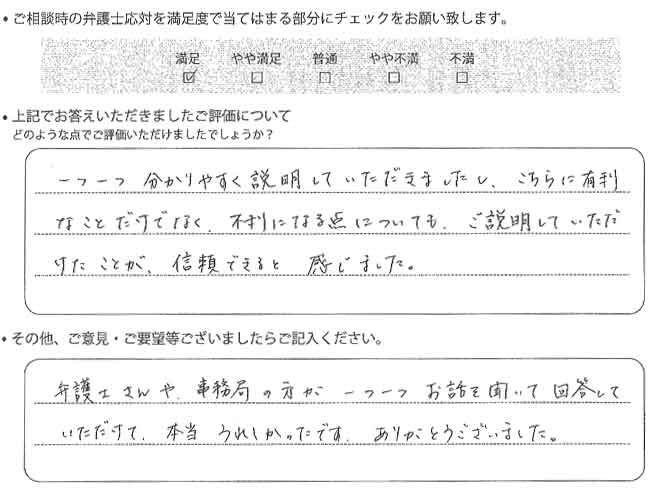 ・ご相談時の弁護士応対を満足度で当てはまる部分にチェックをお願い致します。
満足 やや満足 普通 やや不満 不満
☑ □ □ □ □
・上記でお答えいただきましたご評価について
どのような点でご評価いただけましたでしょうか?
一つ一つ 分かりやすく説明していただきましたし、こちらに有利
なことだけでなく、不利になる点についても、ご説明していただ
けたことが、信頼できると 感じました。
・その他、ご意見・ご要望等ございましたらご記入ください。
弁護士さんや、事務局の方が 一つ一つ お話を聞いて 回答して
いただけて、本当 うれしかったです。ありがとうございました。